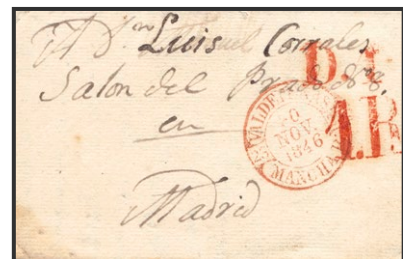 A Dⁿ Luis Corrales
Salon del Prado nº 8.
en
Madrid
VALDEPEÑAS
NOV
1846
MANCHA
1.R